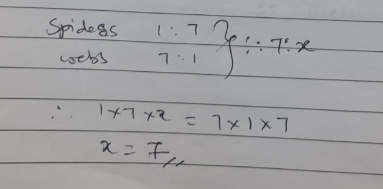 Spiders 1 : 7 } :: 7 : x
webs 7 : 1
∴ 1×7×x = 7×1×7
x = 7,,